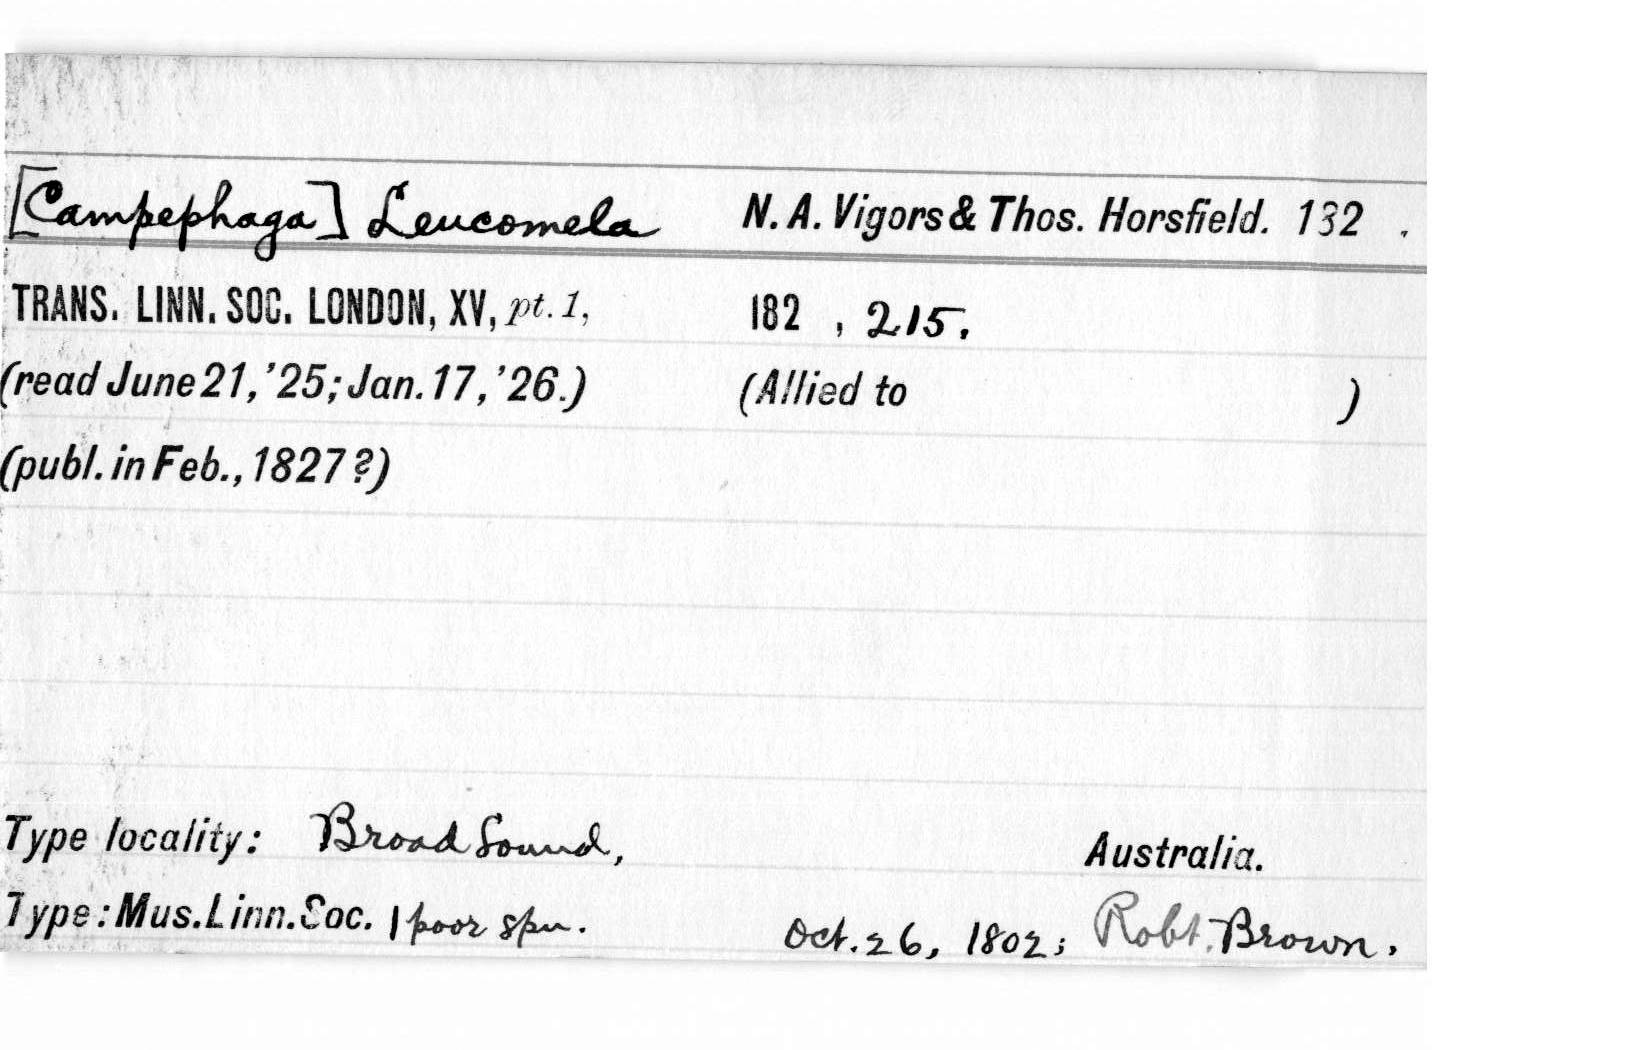 [Campephaga] Leucomela N. A. Vigors & Thos. Horsfield. 132 .
TRANS. LINN. SOC. LONDON, XV, pt. 1, 182 , 215.
(read June 21, '25; Jan. 17, '26.) (Allied to )
(publ. in Feb., 1827?)
Type locality: Broad Sound, Australia.
Type: Mus. Linn. Soc. 1 poor spn. Oct. 26, 1802; Robt. Brown.